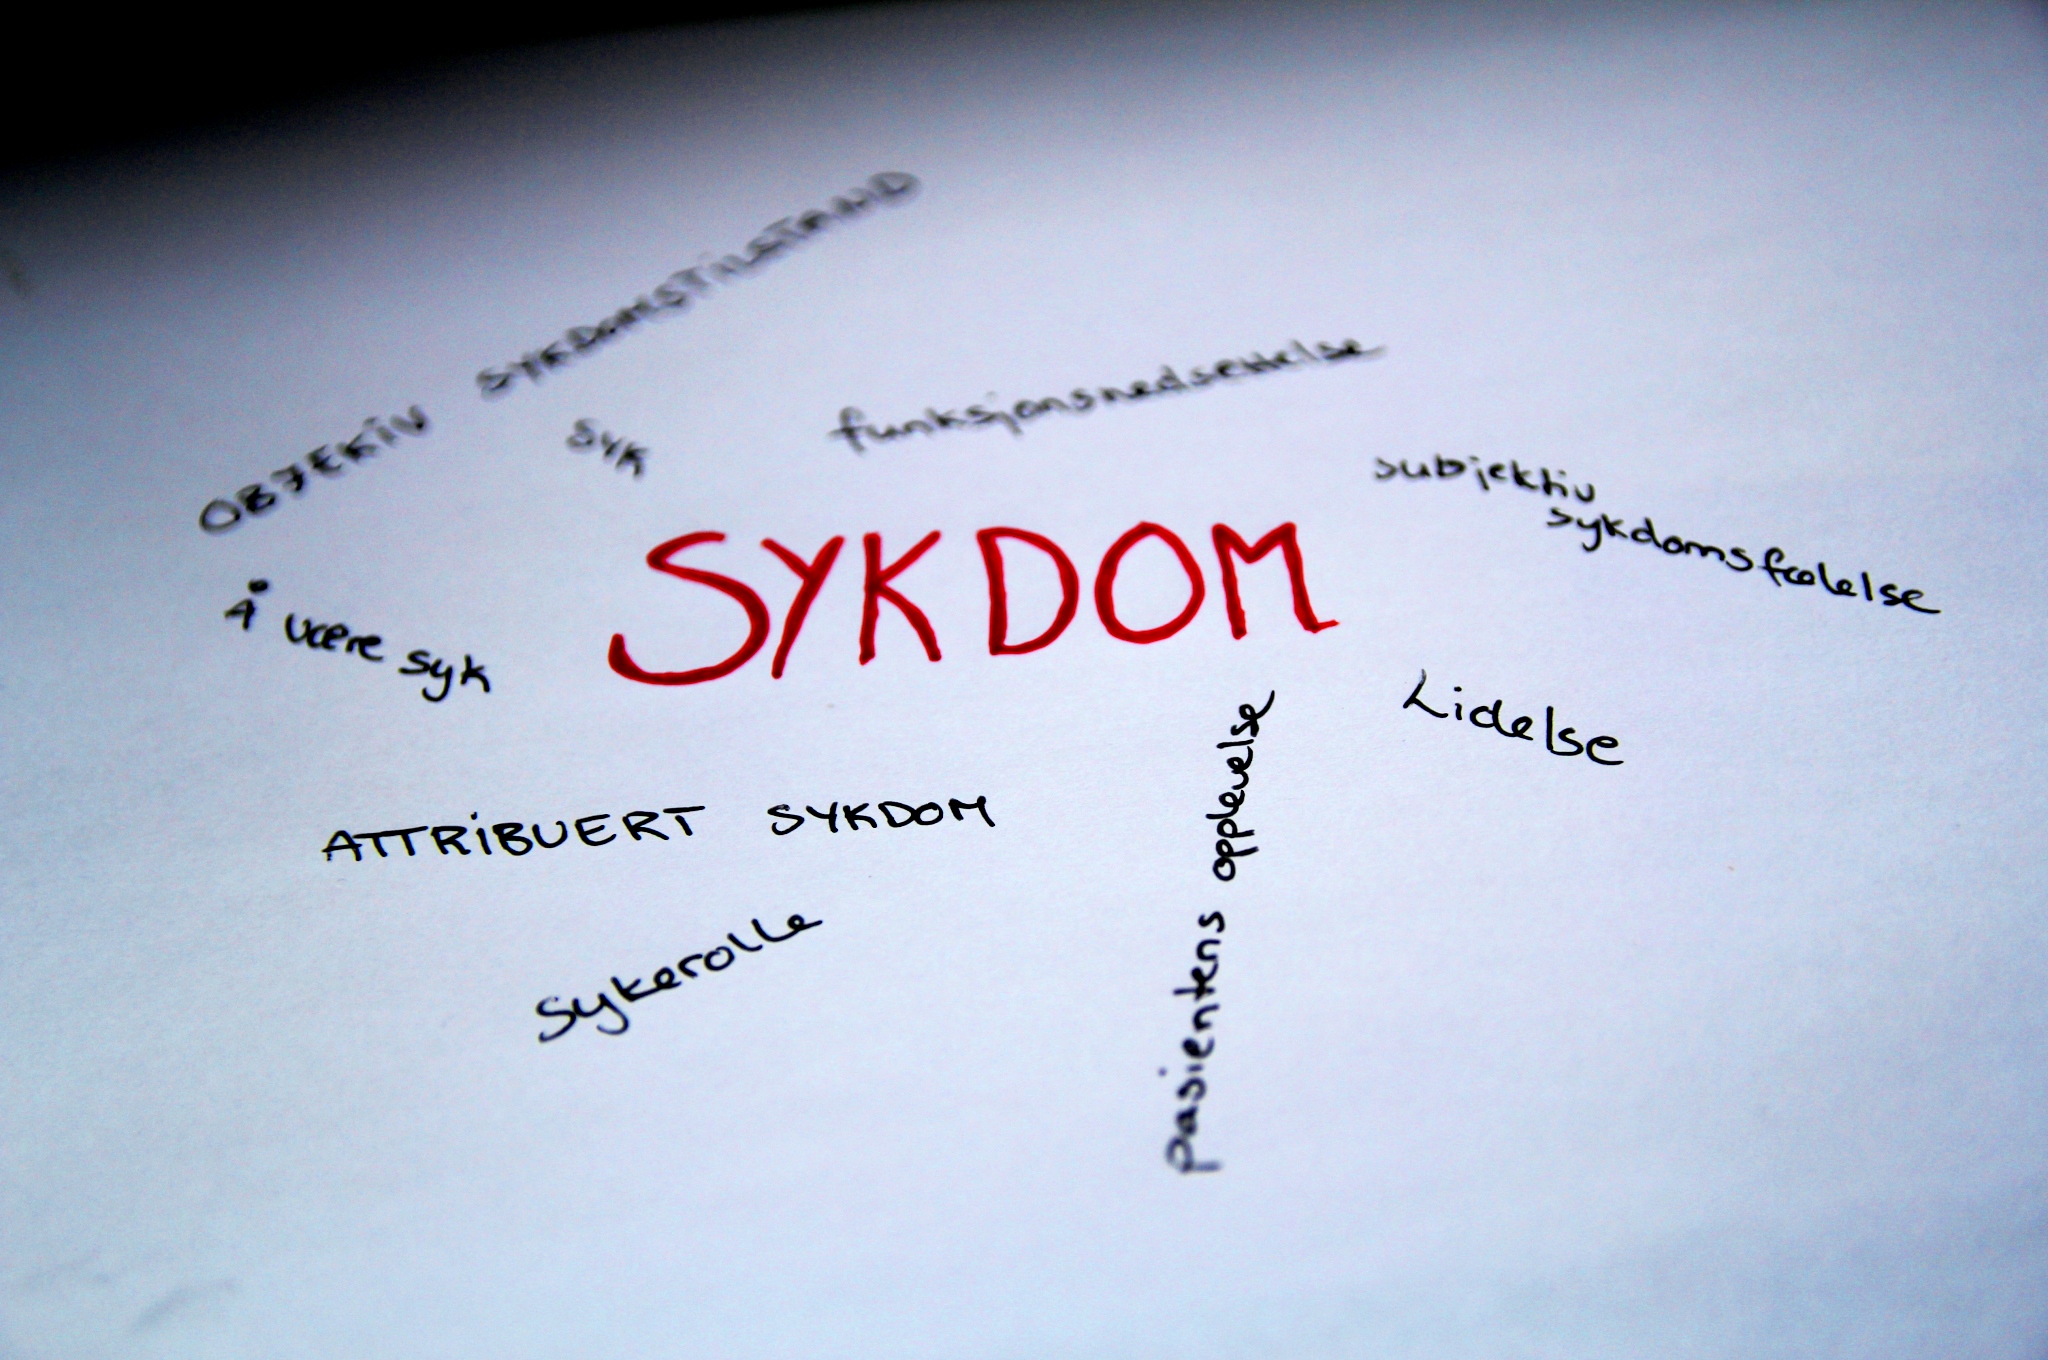 OBJEKIV SYKDOMSTILSTAND
SYK
funksjonsnedsettelse
subjektiv
sykdomsfølelse
SYKDOM
Å være syk
Lidelse
ATTRIBUERT SYKDOM
pasientens opplevelse
Sykerolle